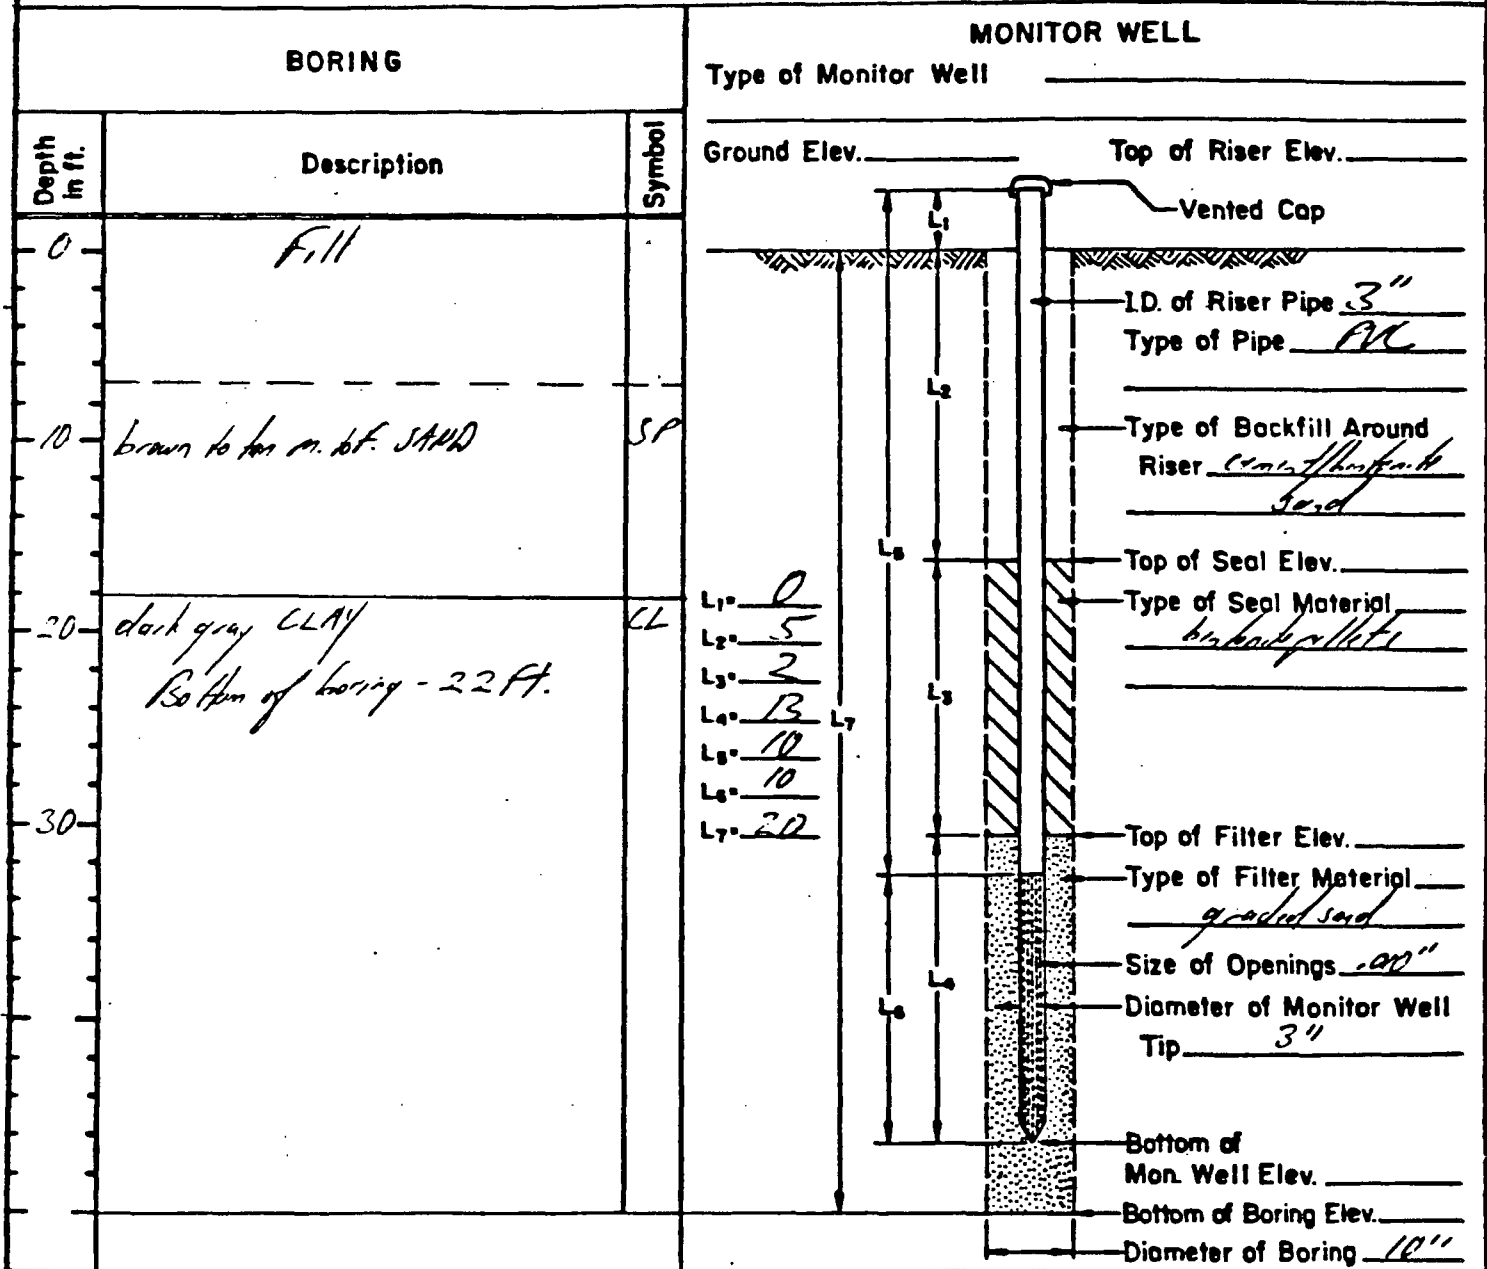 BORING
Depth in ft.
Description
Symbol
0 Fill
10 brown to tan m. to f. SAND SP
20 dark gray CLAY CL
Bottom of boring - 22 ft.
30
MONITOR WELL
Type of Monitor Well
Ground Elev. Top of Riser Elev.
Vented Cap
L1
I.D. of Riser Pipe 3"
Type of Pipe PVC
L2
Type of Backfill Around
Riser cement/bentonite
sand
L5
Top of Seal Elev.
Type of Seal Material
bentonite pellets
L1= 0
L2= 5
L3= 2
L4= 13
L5= 10
L6= 10
L7= 20
L3
L7
Top of Filter Elev.
Type of Filter Material
graded sand
Size of Openings
L4
L6
Diameter of Monitor Well
Tip 3"
Bottom of
Mon. Well Elev.
Bottom of Boring Elev.
Diameter of Boring 10"